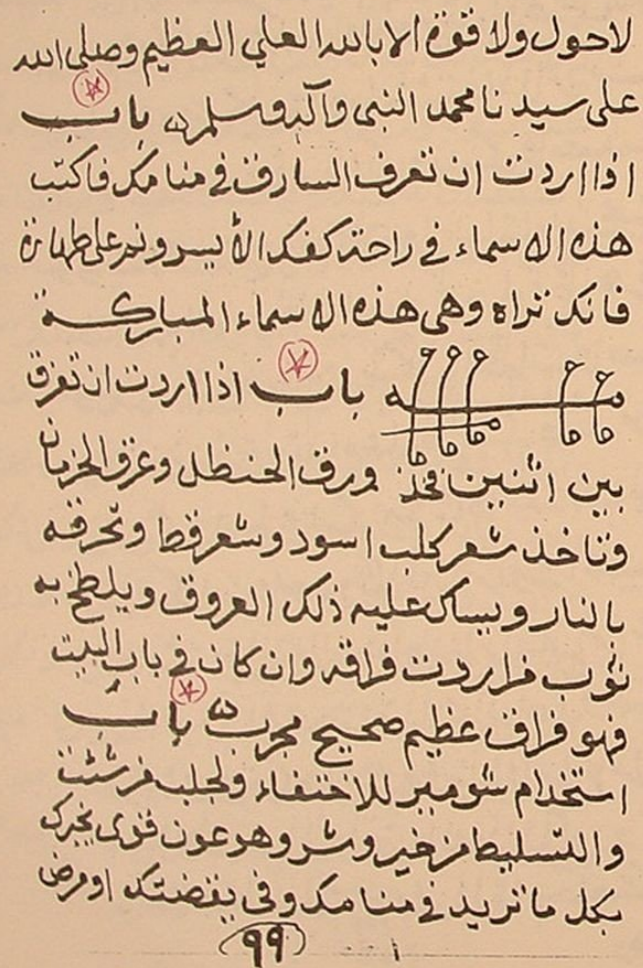 لاحول ولا قوة الا بالله العلي العظيم وصلى الله
على سيدنا محمد النبى وآله وسلم باب
اذا اردت ان تعرف السارق فى منامك فاكتب
هذه الاسماء فى راحة كفك الأيسر ونم على طهارة
فانك تراه وهى هذه الاسماء المباركة
باب اذا اردت ان تفرق
بين اثنين فخذ ورق الحنظل وعرق
وتاخذ شعر كلب اسود وشعر قط وتحرقه
بالنار ويساك عليه ذلك العروق ويلطخ به
ثوب من اردت فراقه وان كان فى باب البيت
فهو فراق عظيم صحيح مجرب باب
استخدام شومير للاختفاء ولجلب من شئت
والتسليط من خير وشر وهو عون قوى يخبرك
بكل ما تريد فى منامك وفى يقضتك او مرض
٩٩